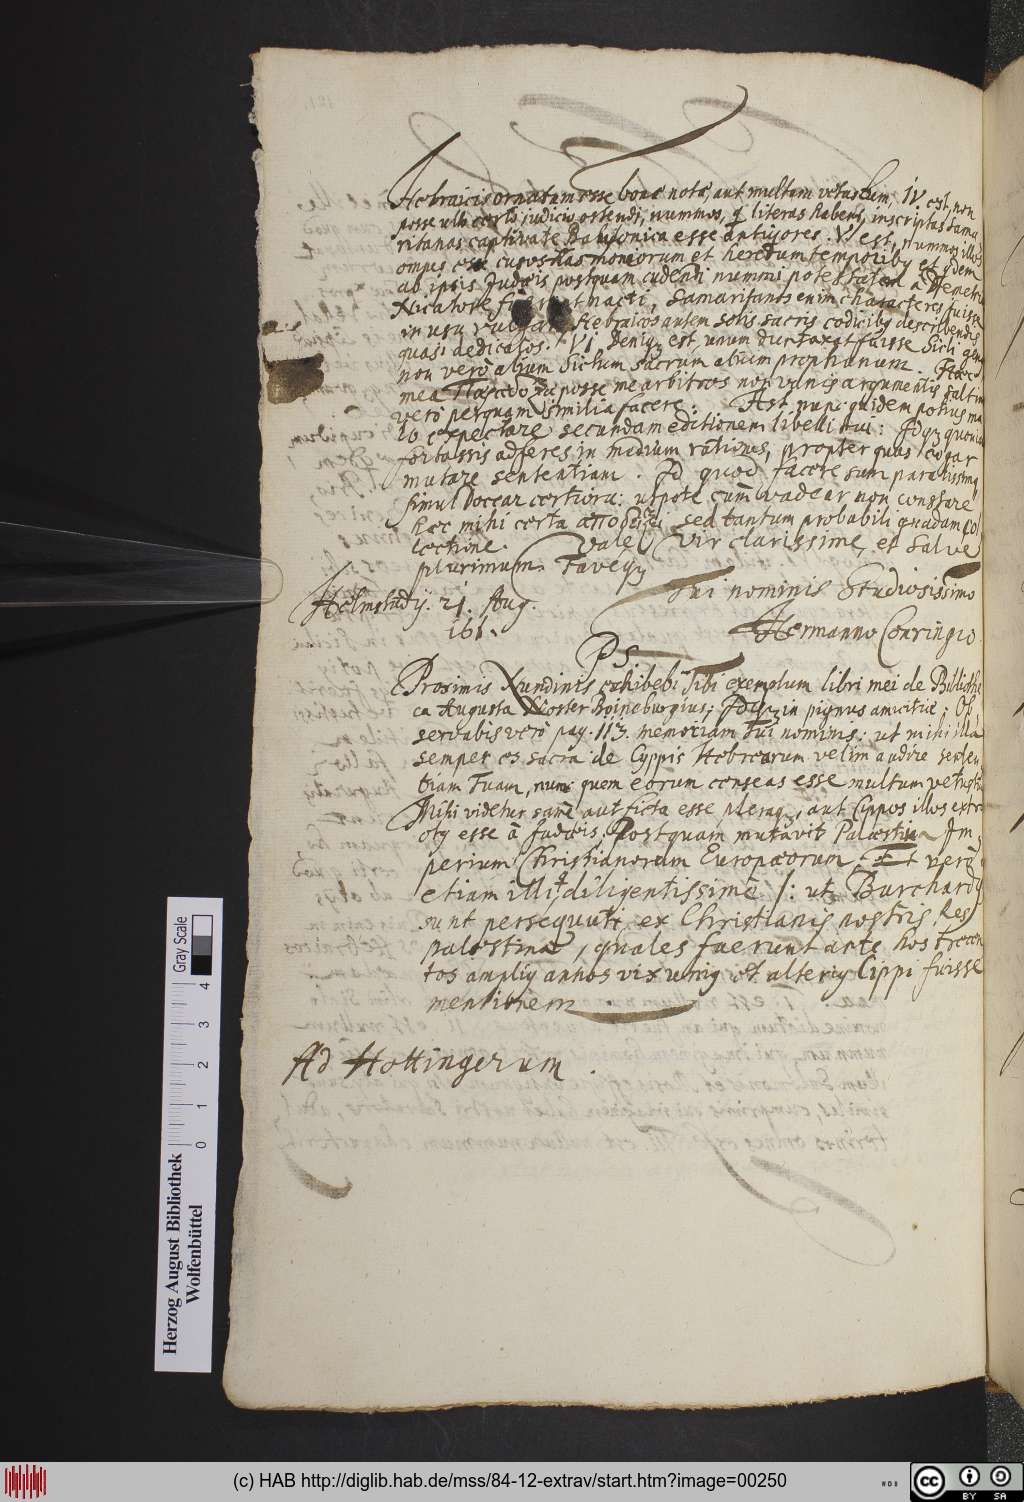 Hebraicis ornatum esse bonae notae, aut multum vetustum. IV. est, non
posse ullo certo judicio ostendi, nummos, q literas habent, inscriptas Sama
ritanas captivitate Babylonica esse antiquiores. V. est, nummos illos
omnes esse cusos Hasmonaeorum et Heredum temporibus et quidem
ab ipsis Judaeis postquam cudendi nummi potestatem a Demetrio
Nicatore nacti, Samaritanos enim characteres fuisse
in usu vulgari Hebraicos autem solis sacris codicibus describendis
quasi dedicatos. VI. Deniq est unum duntaxat fuisse Sicli genus
non vero alium Siclum sacrum alium prophanum. Haec
mea posse me arbitror non vanis argumentis saltim
vero perquam similia facere. Ast nunc quidem potius ma
lo expectare secundam editionem libelli tui: Idq quoniam
fortassis adferes in medium rationes, propter quas cogar
mutare sententiam. Id quod facere sum paratissimus
simul docear certiora: utpote cum videar non constare
haec mihi certa sed tantum probabili quadam col
lectione. Vale Vir clarissime, et salve
plurimum. Faveq
Tui nominis Studiosissimo
Helmstadij. 21. Aug.
161.
Hermanno Conringio.
PS
Proximis Nundinis exhibebit Tibi exemplum libri mei de Bibliothe
ca Augusta Noster Boineburgius; Idq in pignus amicitiae;
servabis vero pag. 113. memoriam Tui nominis: ut mihi illa
semper es sacra: de Cyppis Hebraeorum velim audire senten
tiam Tuam, num quem eorum censeas esse multum vetustum
Mihi videtur sane aut ficta esse pleraq, aut Cippos illos extru
ctos esse à Judaeis. Postquam mutavit Palaestina Im
perium Christianorum Europaeorum. Et vero
etiam illi, q diligentissimè /: ut Burchardus
sunt persequuti ex Christianis nostris Res
palestinae, quales fuerunt ante hos trecen
tos amplius annos vix unius et alterius Cippi fuisse
mentionem.
Ad Hottingerum.
Herzog August Bibliothek
Wolfenbüttel
0 1 2 3 4
Gray Scale
(c) HAB http://diglib.hab.de/mss/84-12-extrav/start.htm?image=00250
cc BY SA